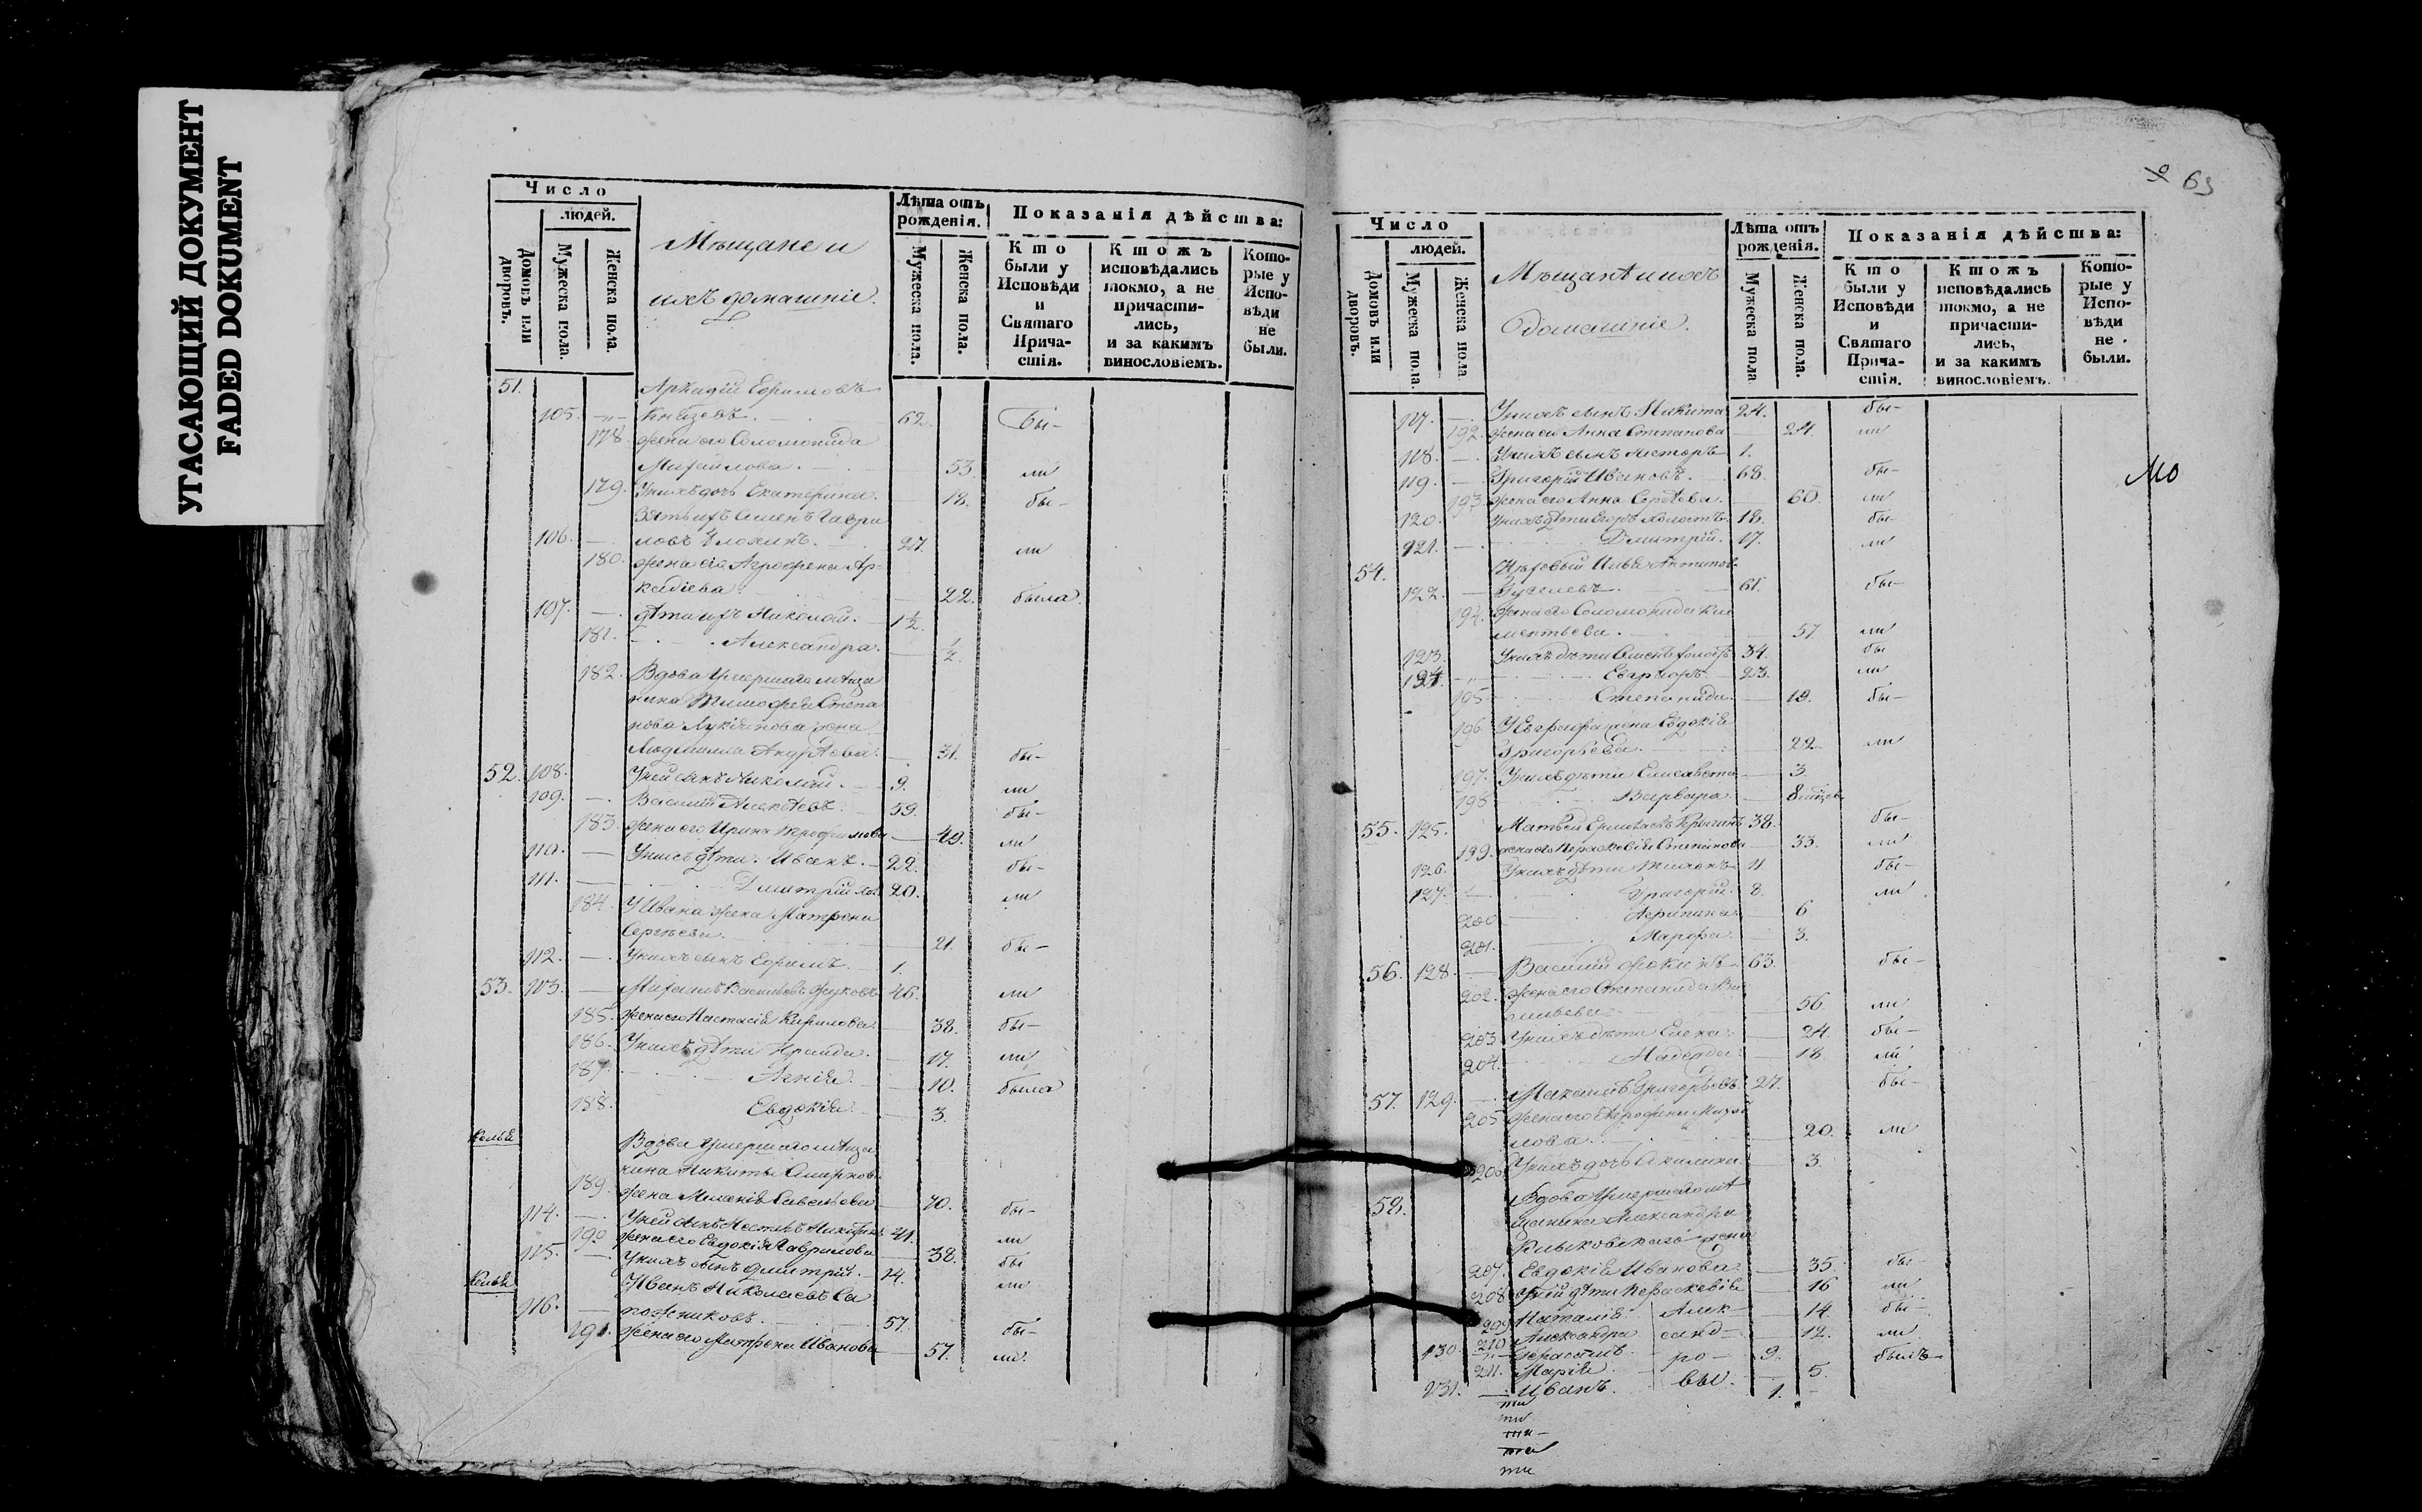 УГАСАЮЩИЙ ДОКУМЕНТ
FADED DOKUMENT
Число
людей.
Домовъ или дворовъ.
Мужеска пола.
Женска пола.
Мѣщане и
ихъ домашніе.
Лѣта отъ рожденія.
Мужеска пола.
Женска пола.
Показанія дѣйства:
Кто были у Исповѣди и Святаго Причастія.
Ктожъ исповѣдались токмо, а не причастились, и за какимъ винословіемъ.
Которые у Исповѣди не были.
51. Аркадій Ефримовъ
105. Князевъ. 62. бы-
178. жена его Соломонида
Михайлова. 53 ли
179. У нихъ дочь Екатерина. 18. бы-
Зять ихъ Семенъ Гаври
106. ловъ 27. ли
180. жена его Агрофена Ар-
кадіева. 22. была
107. дѣти ихъ Николай. 1½.
181. Александра. ½.
182. Вдова умершаго мѣща
нина Тимофея Степа
нова Лукіянова жена
Людмила Андрѣева. 31. бы-
52. 108. У ней сынъ Николай. 9. ли
109. Василій Алексѣевъ. 59. бы-
183. жена его Ирина Трофимова 49. ли
110. У нихъ дѣти: Иванъ. 22. бы-
111. Дмитрій 20. ли
184. У Ивана жена Матрена
Сергѣева. 21. бы-
112. У нихъ сынъ Ефримъ. 1.
53. 113. Михаилъ Васильевъ Жуковъ 46. ли
185. жена его Настасія Кирилова. 38. бы-
186. У нихъ дѣти Ираида. 17. ли
187. Агнія. 10. была
188. Евдокія. 3.
Келья
Вдова умершаго мѣща
нина Никиты Смирнова
189. жена Меланія Савельева 70. бы-
114. У ней сынъ 41. ли
190. жена его Евдокія Гаврилова 38. бы
115. У нихъ сынъ Дмитрій. 14. ли
Келья
Иванъ Николаевъ Са
116. пожниковъ. 57. бы-
191. жена его Матрена Иванова 57. ли.
63
Число
людей.
Домовъ или дворовъ.
Мужеска пола.
Женска пола.
Мѣщане и ихъ
домашніе.
Лѣта отъ рожденія.
Мужеска пола
Женска пола.
Показанія дѣйства:
Кто были у Исповѣди и Святаго Причастія.
Ктожъ исповѣдались токмо, а не причастились, и за какимъ винословіемъ.
Которые у Исповѣди не были.
117. У нихъ сынъ Никита 24. бы-
192. жена его Анна Степанова 24. ли
118. У нихъ сынъ Несторъ 1.
119. Григорій Ивановъ. 68. бы-
193. жена его Анна Сергѣева. 60. ли
120. У нихъ дѣти Егоръ холостъ 18. бы-
121. Дмитрій. 17. ли
54. Цѣховый Илья Антиповъ
122. 61. бы-
194. жена его Соломонида Кле
ментьева. 57 ли
123. У нихъ дѣти Семенъ холостъ 34. бы
124. Евграфъ 23. ли
195 Степанида 19. бы-
196. У Евграфа жена Евдокія
Григорьева. 22. ли
197. У нихъ дѣти Елисавета 3.
198 Варвара. 8 мѣсец
55. 125. Матвей 38. бы-
199. жена его Параскевія Степанова 33. ли
126. У нихъ дѣти 11 бы-
127. Григорій. 8. ли
200 Агрипина 6
201. Марфа. 3.
56. 128. Василій Фокинъ 63. бы-
202. жена его Степанида Ва
сильева. 56. ли
203 У нихъ дѣти Елена. 24. бы-
204. Надежда. 18. ли
57. 129. Максимъ Григорьевъ. 27. бы-
205 жена его Агрофена Михай
лова. 20. ли
206 У нихъ дочь Акилина 3.
58. Вдова умершаго мѣ
щанина Александра
жена
207. Евдокія Иванова. 35. бы-
208. У ней дѣти Параскевія 16 ли
209 Наталія. Алек- 14. бы-
210 Александра санд- 12. ли
130. Герасимъ. ро- 9. былъ
211. Марія. вы. 5.
131. Иванъ. 1.